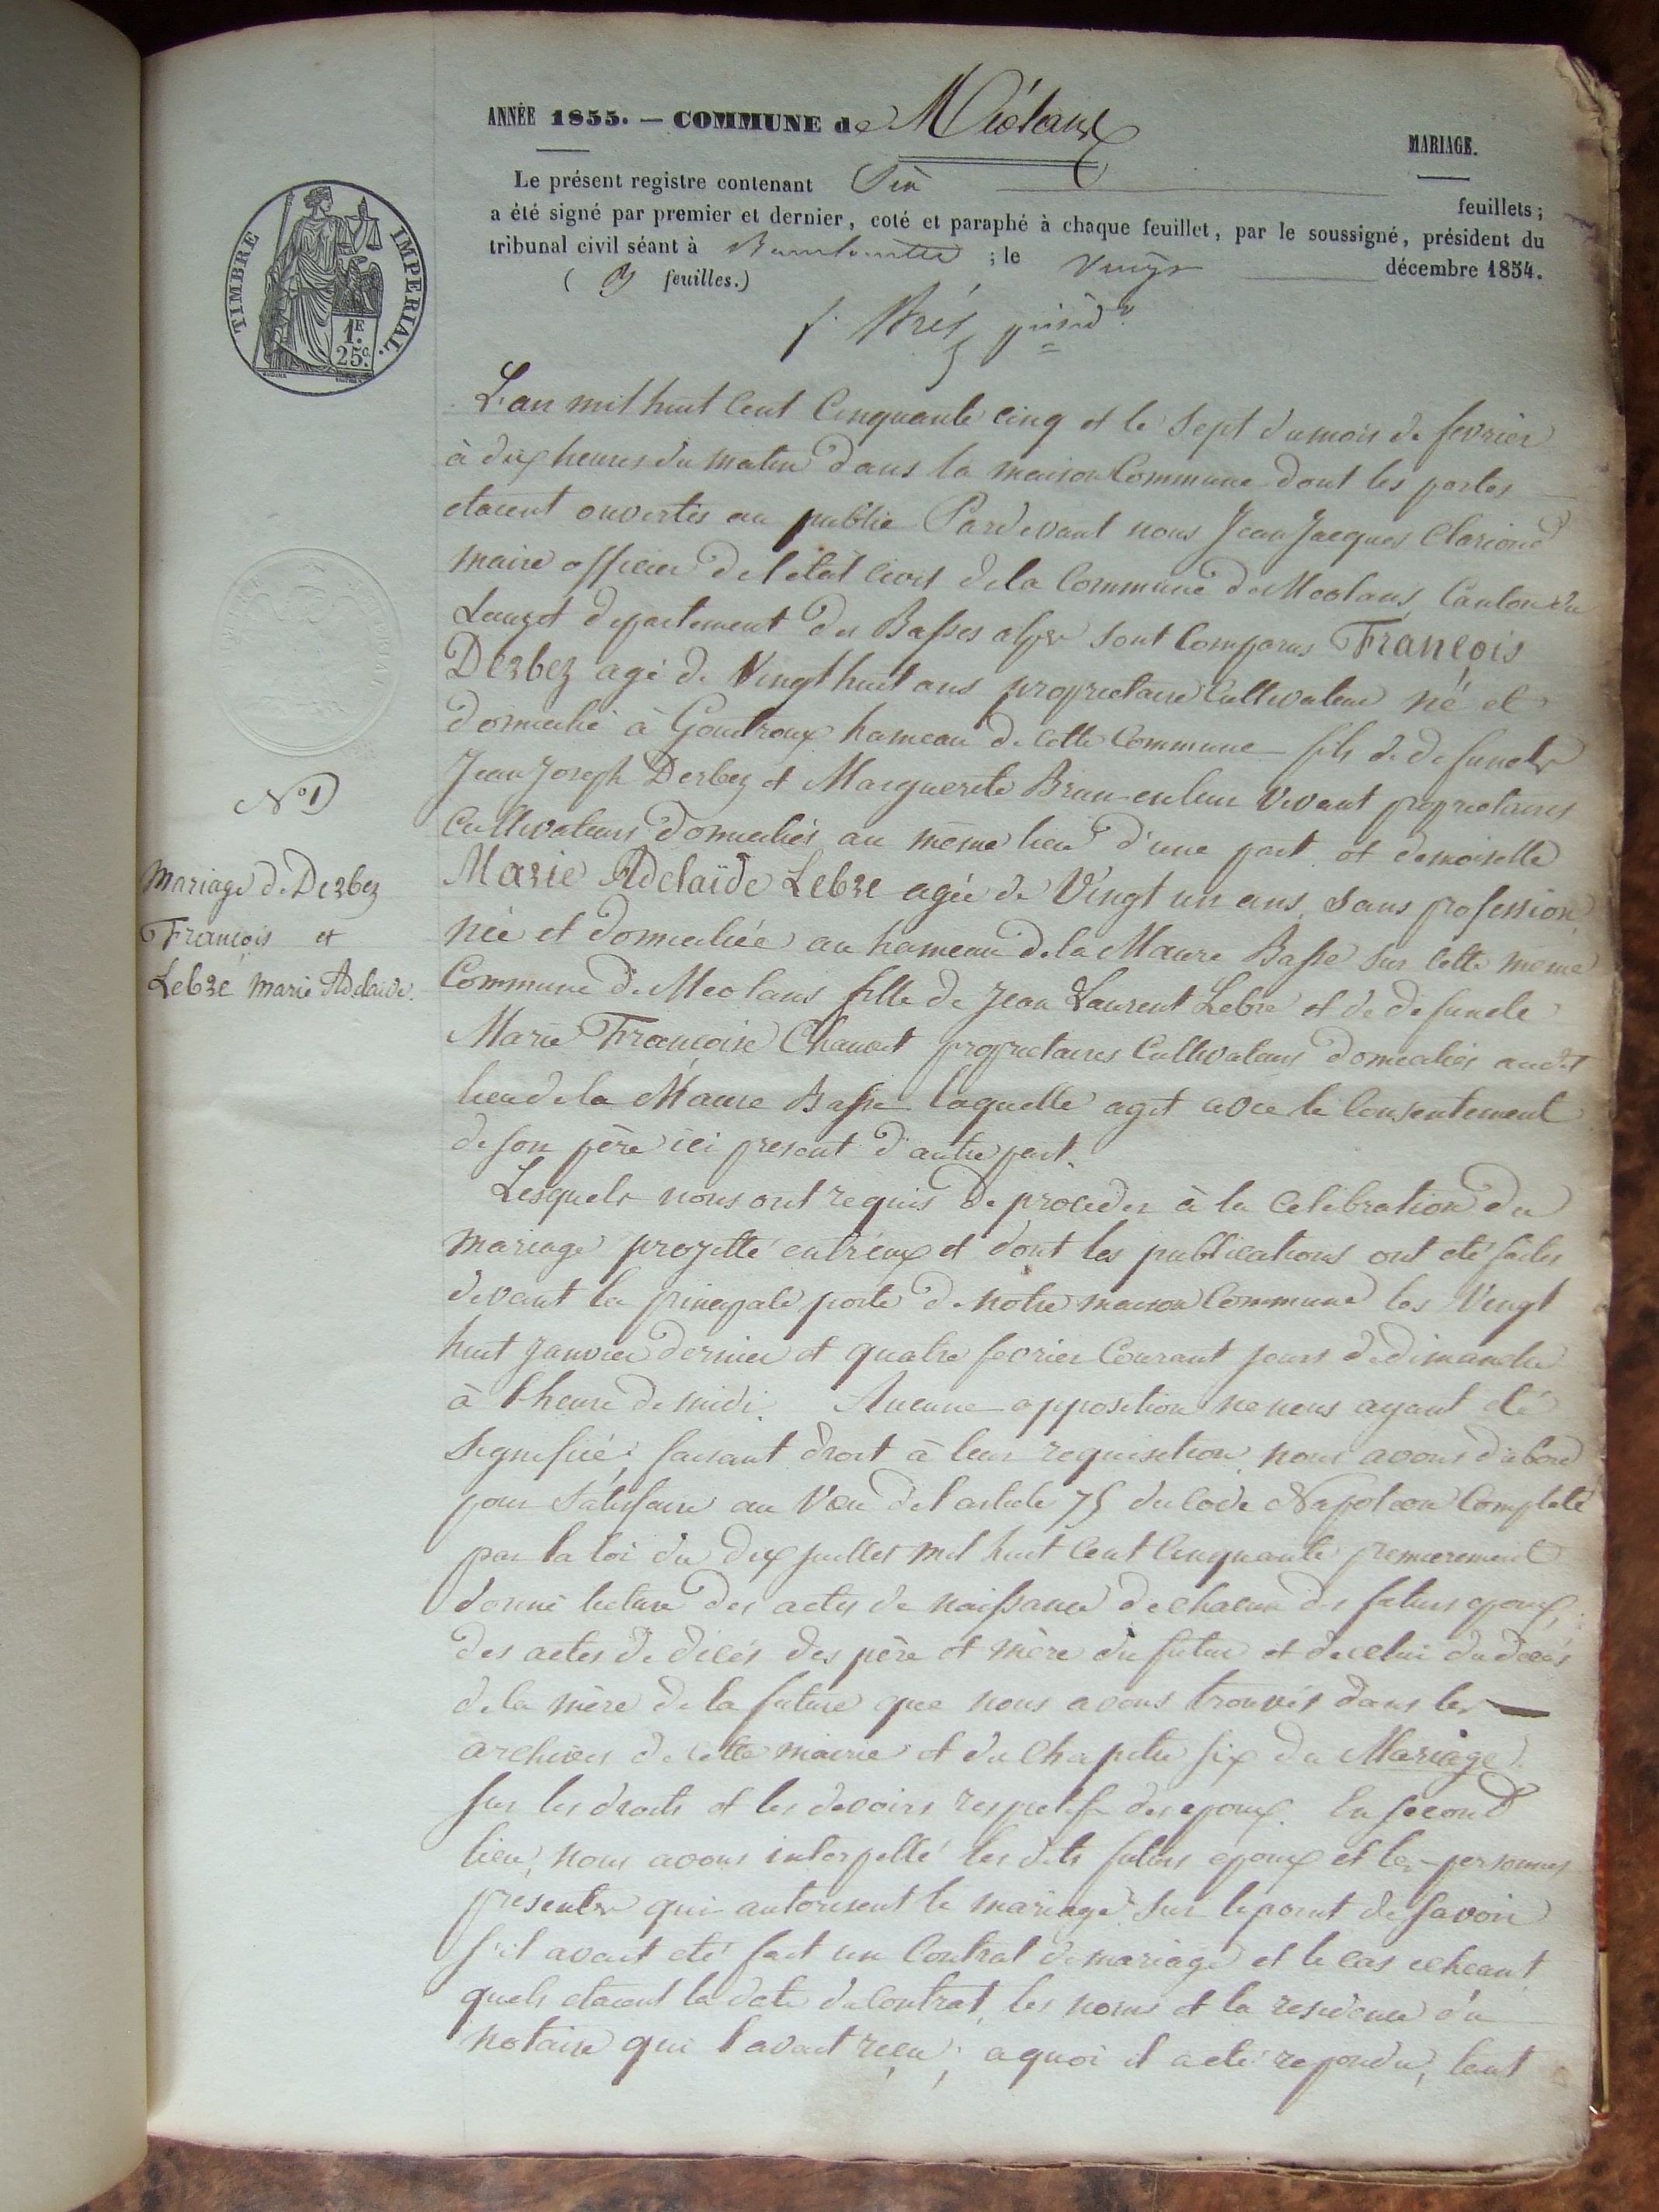 ANNÉE 1855. — COMMUNE de Méolans
MARIAGE.
Le présent registre contenant Six feuillets ;
a été signé par premier et dernier, coté et paraphé à chaque feuillet, par le soussigné, président du
tribunal civil séant à ; le décembre 1854.
( 3 feuilles.)
TIMBRE IMPERIAL.
1F.
25c.
L'an mil huit Cent Cinquante cinq et le Sept du mois de fevrier
à dix heures du matin dans la maison Commune dont les portes
etaient ouvertes au public Pardevant nous Jean Jacques Clariond
maire officier de l'état Civil de la Commune de Meolans Canton du
Lauzet departement des Basses alpes sont Comparus François
Derbez agé de Vingt huit ans proprietaire Cultivateur né et
domicilié à Goudroux hameau de cette Commune fils de defunts
Jean Joseph Derbez et Marguerite Brun en leur Vivant proprietaires
Cultivateurs domiciliés au même lieu d'une part et demoiselle
Marie Adelaïde Lebre agée de Vingt un ans, sans profession
née et domiciliée au hameau de la Maure Basse sur cette meme
Commune de Meolans fille de Jean Laurent Lebre et de defunte
Marie Françoise Chauvet proprietaires Cultivateurs domiciliés audit
lieu de la Maure Basse laquelle agit avec le Consentement
de son père ici present d'autre part.
Lesquels nous ont requis de proceder à la Celebration du
mariage projetté entr'eux et dont les publications ont eté faites
devant la principale porte de notre maison Commune les Vingt
huit Janvier dernier et quatre fevrier Courant jours de dimanche
à l'heure de midi. Aucune opposition ne nous ayant eté
signifiée faisant droit à leur requisition, nous avons d'abord
pour Satisfaire au Vœu de l'article 75 du Code Napoléon Completé
par la loi du dix juillet mil huit Cent Cinquante premierement
donné lecture des actes de naissance de chacun des futurs epoux,
des actes de décès des père et mère du futur et de celui du décès
de la mère de la future que nous avons trouvés dans les
archives de cette mairie et du Chapitre six du Mariage
sur les droits et les devoirs respectifs des epoux. En second
lieu, nous avons interpellé les dits futurs epoux et les personnes
présentes qui autorisent le mariage sur le point de savoir
s'il avait eté fait un Contrat de mariage et le cas echeant
quels etaient la date du Contrat, les noms et la residence du
notaire qui l'avait reçu ; a quoi il a eté repondu, tant
N° 1
Mariage de Derbez
François et
Lebre Marie Adelaïde.